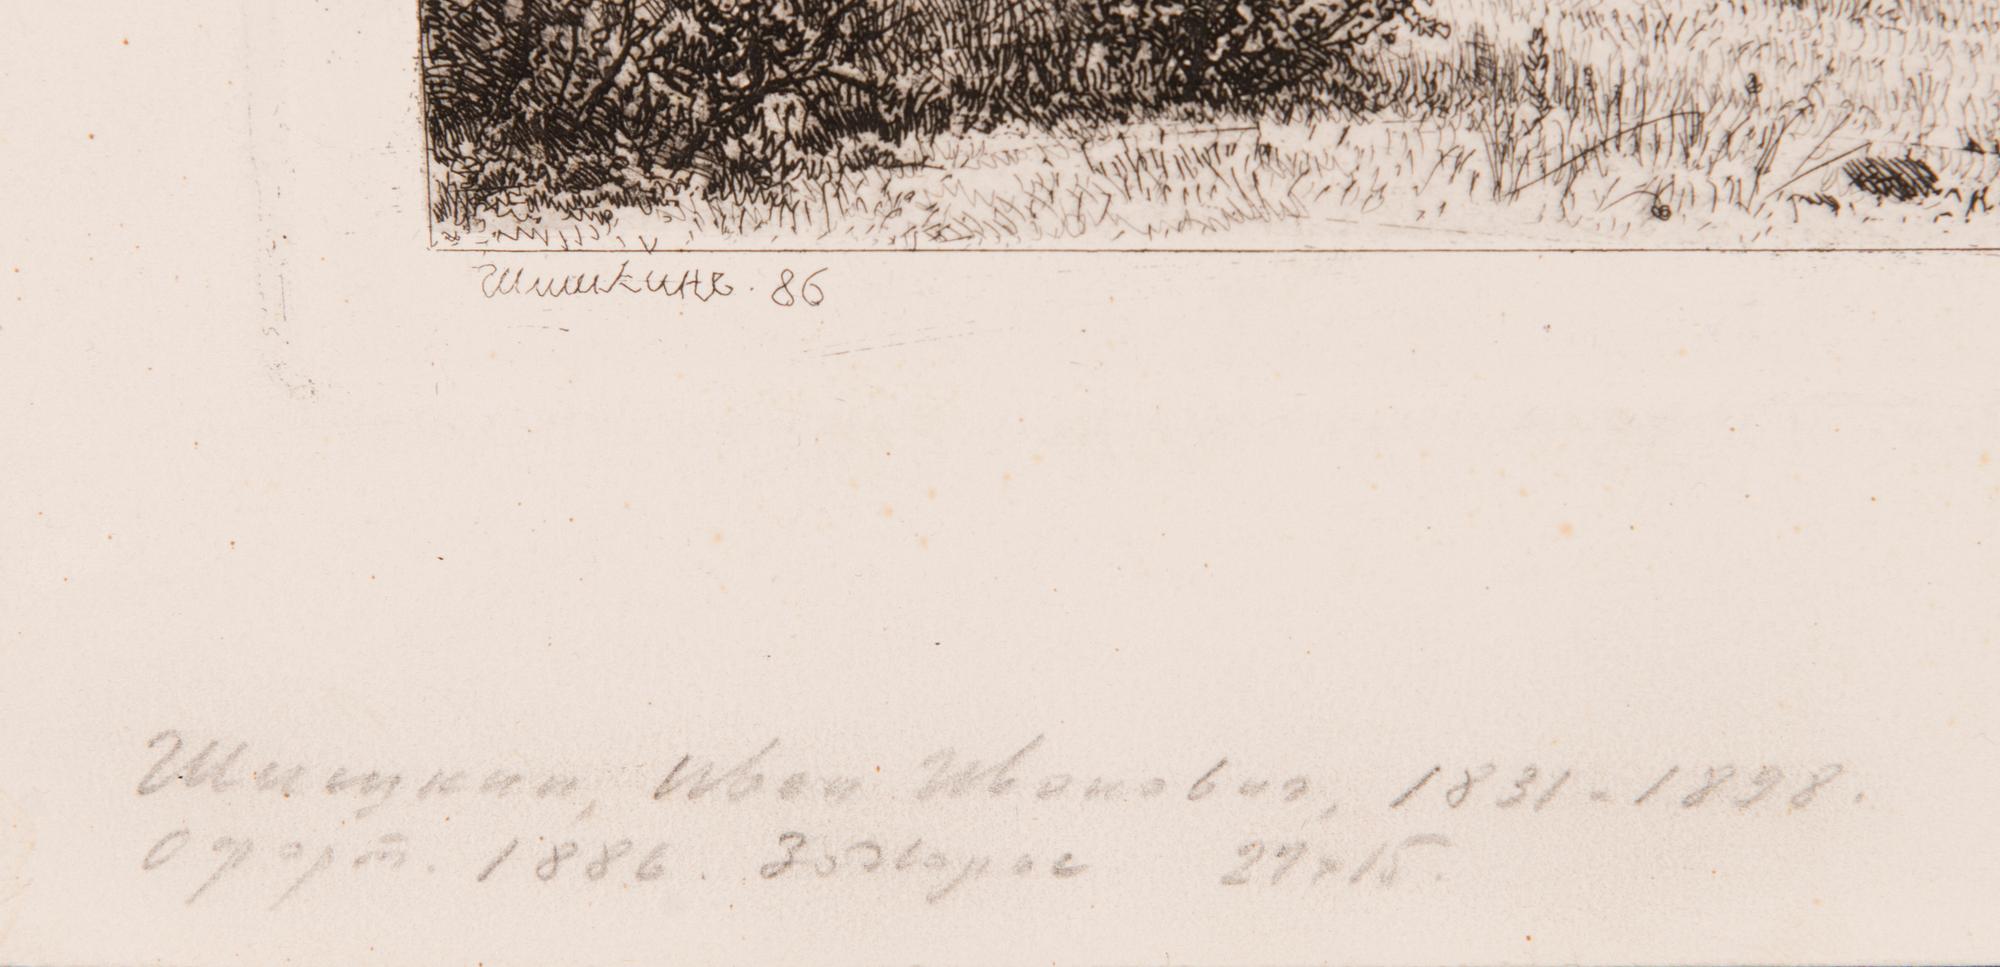 Шишкинъ. 86
Шишкин, Иван Иванович, 1831-1898.
Офорт. 1886. 27x15.